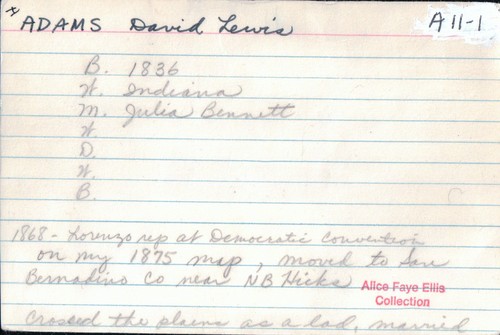 ADAMS David Lewis A11-1
B. 1836
W. Indiana
M. Julia Bennett
W.
D.
W.
B.
1868 - Lorenzo rep at Democratic Convention
on my 1875 map, moved to San
Bernadino Co near NB Hicks
Alice Faye Ellis
Collection
Crossed the plains as a lad, married